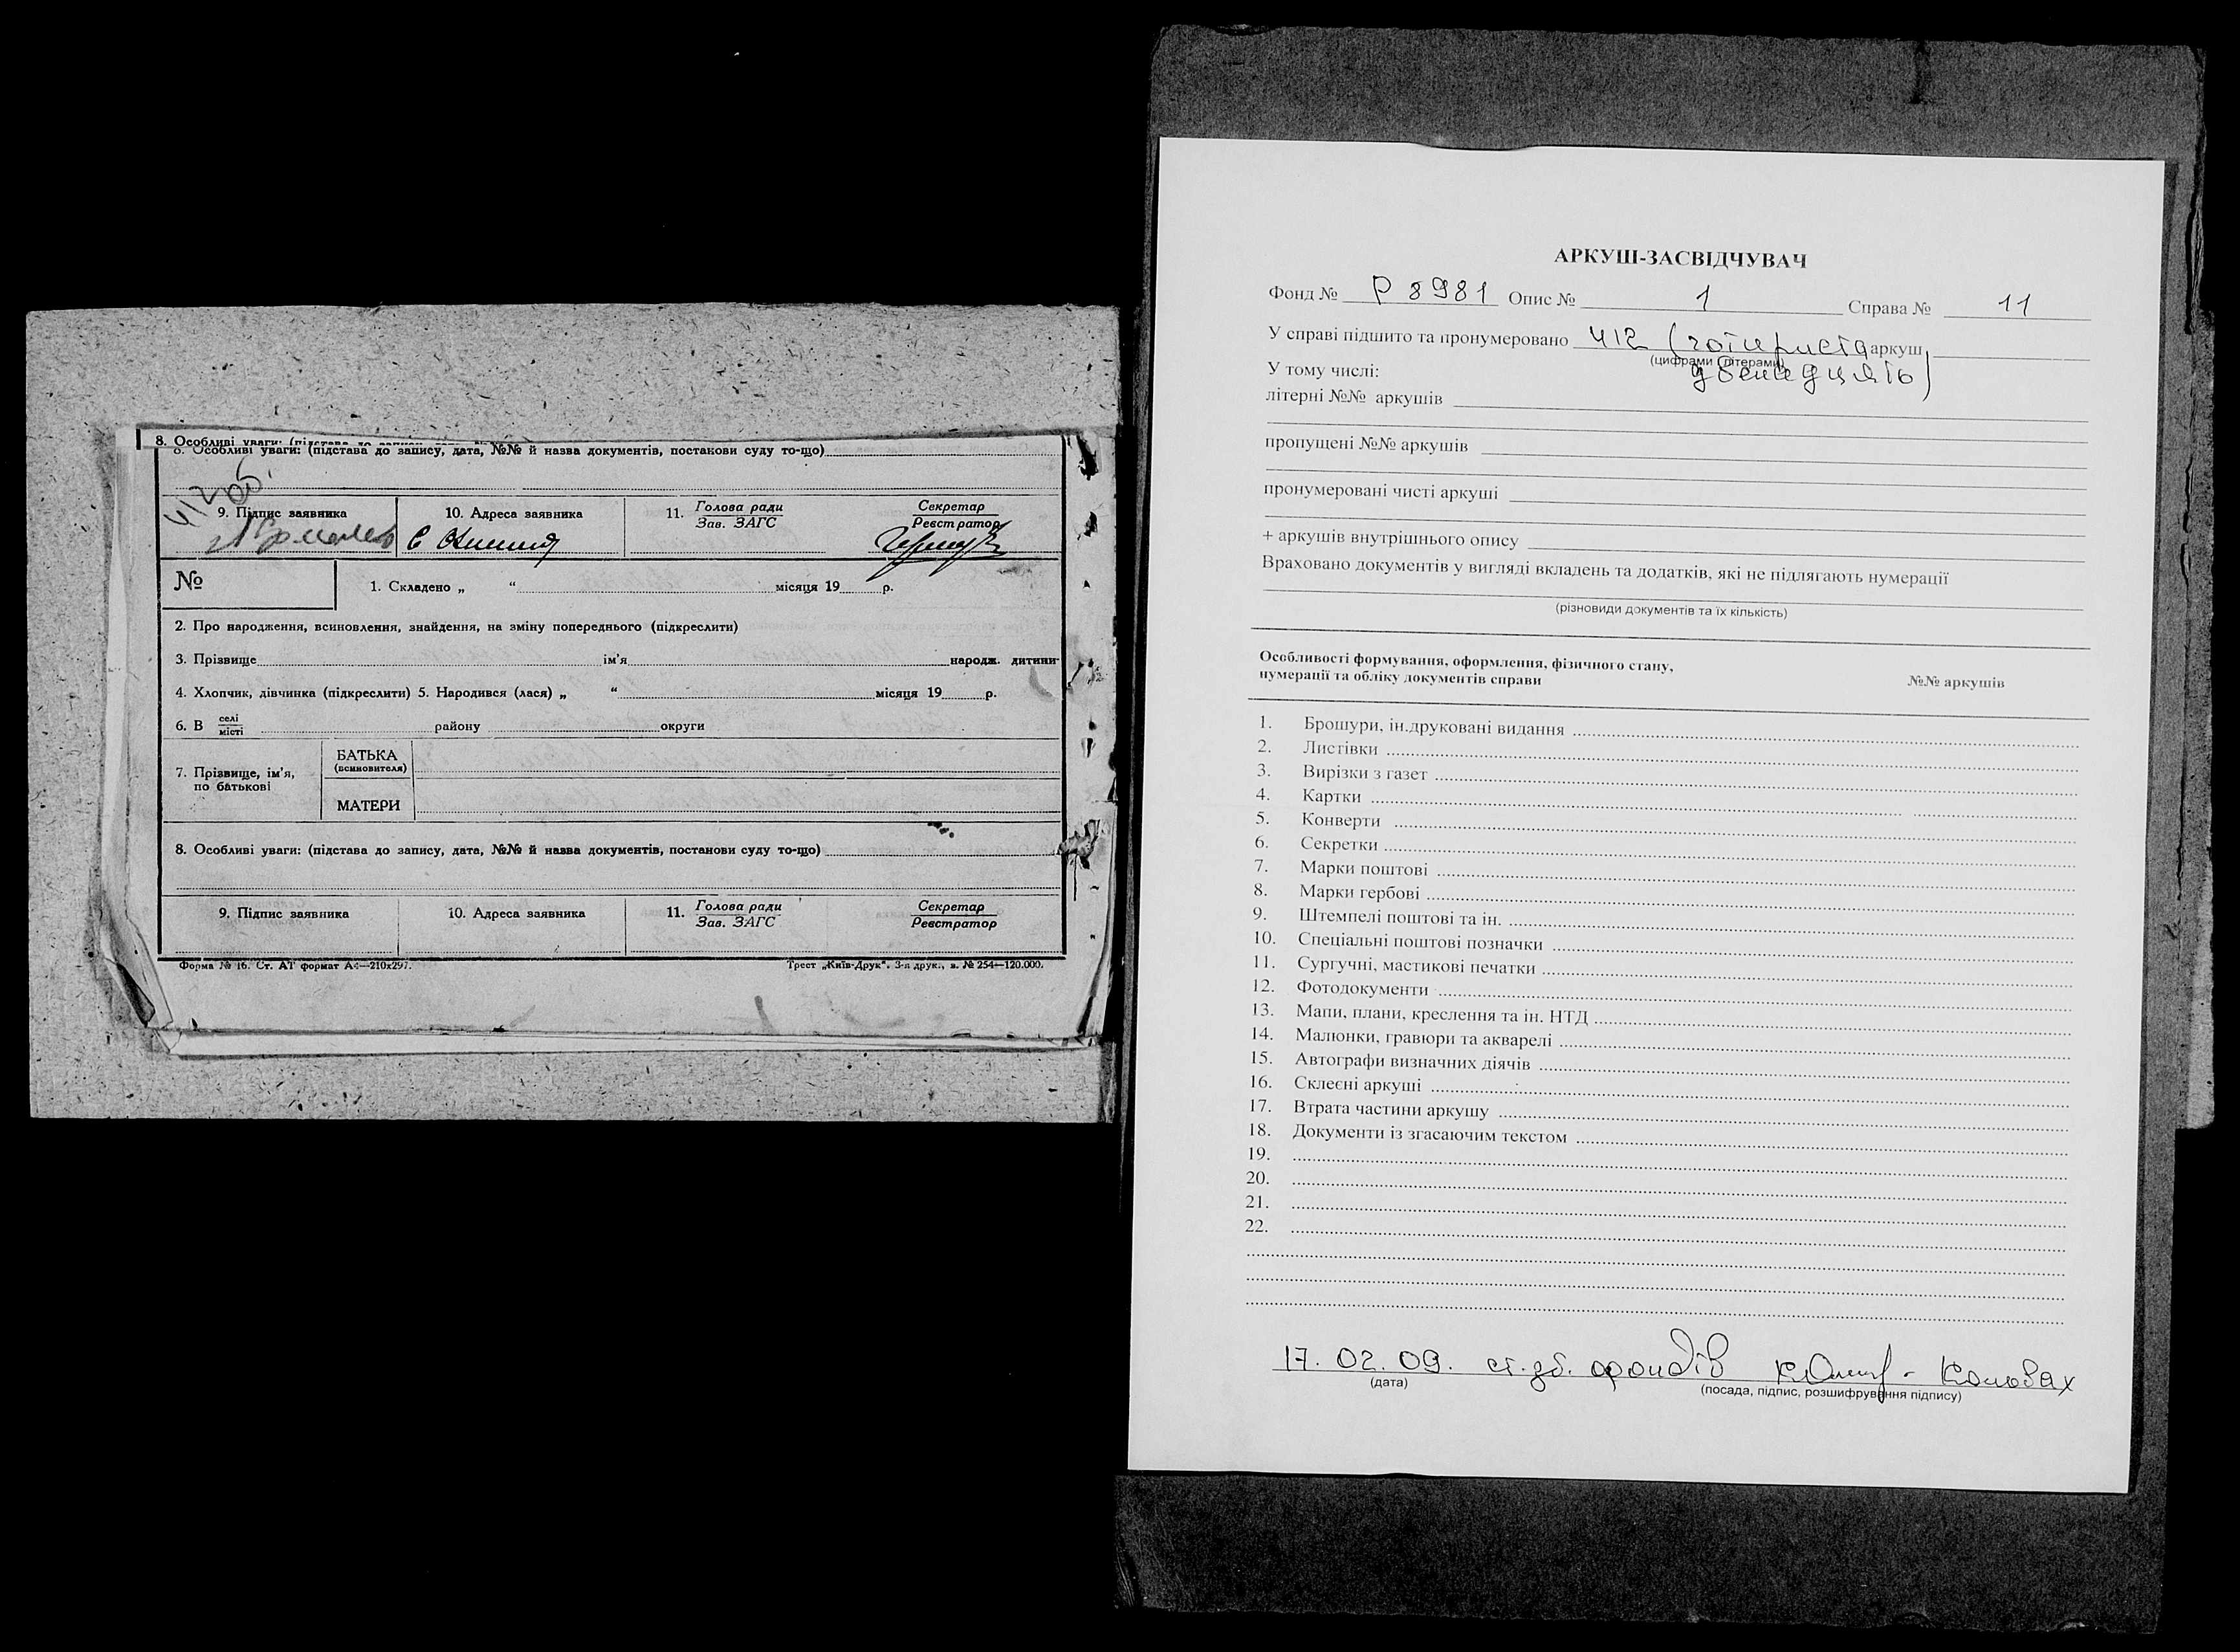 8. Особливі уваги: (підстава до запису, дата, №№ й назва
8. Особливі уваги: (підстава до запису, дата, №№ й назва документів, постанови суду то-що)
412 об.
9. Підпис заявника
10. Адреса заявника
11. Голова ради
Зав. ЗАГС
Секретар
Реєстратор
№
1. Складено „ “ місяця 19 р.
2. Про народження, всиновлення, знайдення, на зміну попереднього (підкреслити)
3. Прізвище ім'я народж. дитини
4. Хлопчик, дівчинка (підкреслити) 5. Народився (лася) „ “ місяця 19 р.
6. В селі
місті
району округи
7. Прізвище, ім'я,
по батькові
БАТЬКА
(всиновителя)
МАТЕРИ
8. Особливі уваги: (підстава до запису, дата, №№ й назва документів, постанови суду то-що)
9. Підпис заявника
10. Адреса заявника
11. Голова ради
Зав. ЗАГС
Секретар
Реєстратор
Форма № 16. Ст. АТ формат А4—210х297.
Трест „Київ-Друк“. 3-я друк., з. № 254—120.000.
АРКУШ-ЗАСВІДЧУВАЧ
Фонд № Р 8981 Опис № 1 Справа № 11
У справі підшито та пронумеровано 412 (чотириста аркуш
(цифрами і літерами)
дванадцять)
У тому числі:
літерні №№ аркушів
пропущені №№ аркушів
пронумеровані чисті аркуші
+ аркушів внутрішнього опису
Враховано документів у вигляді вкладень та додатків, які не підлягають нумерації
(різновиди документів та їх кількість)
Особливості формування, оформлення, фізичного стану,
нумерації та обліку документів справи
№№ аркушів
1. Брошури, ін.друковані видання
2. Листівки
3. Вирізки з газет
4. Картки
5. Конверти
6. Секретки
7. Марки поштові
8. Марки гербові
9. Штемпелі поштові та ін.
10. Спеціальні поштові позначки
11. Сургучні, мастикові печатки
12. Фотодокументи
13. Мапи, плани, креслення та ін. НТД
14. Малюнки, гравюри та акварелі
15. Автографи визначних діячів
16. Склеєні аркуші
17. Втрата частини аркушу
18. Документи із згасаючим текстом
19.
20.
21.
22.
17. 02. 09. ст. зб. фондів
(дата)
(посада, підпис, розшифрування підпису)